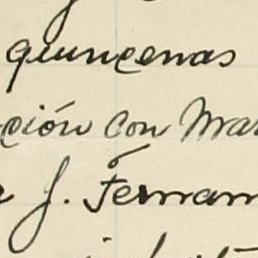 quincenas
ción con Mar
J. Fernan